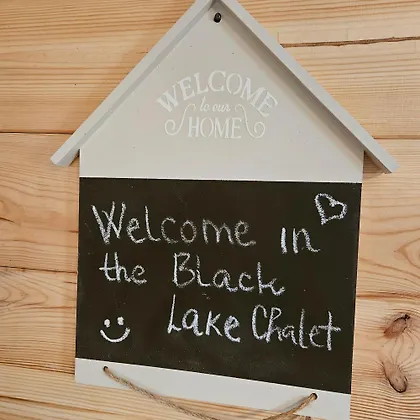 WELCOME
to our
HOME
Welcome in
the Black
Lake Chalet